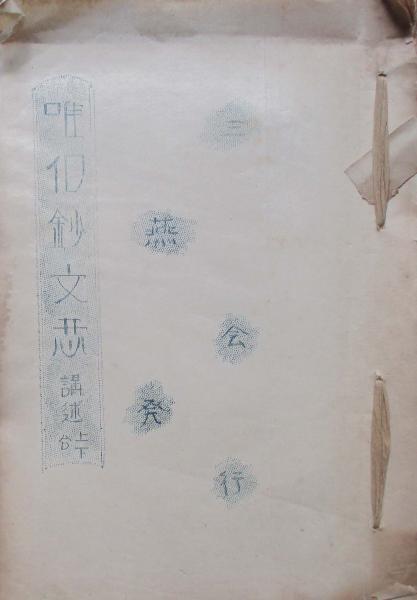 三燕会発行
唯信鈔文意 講述 上下合